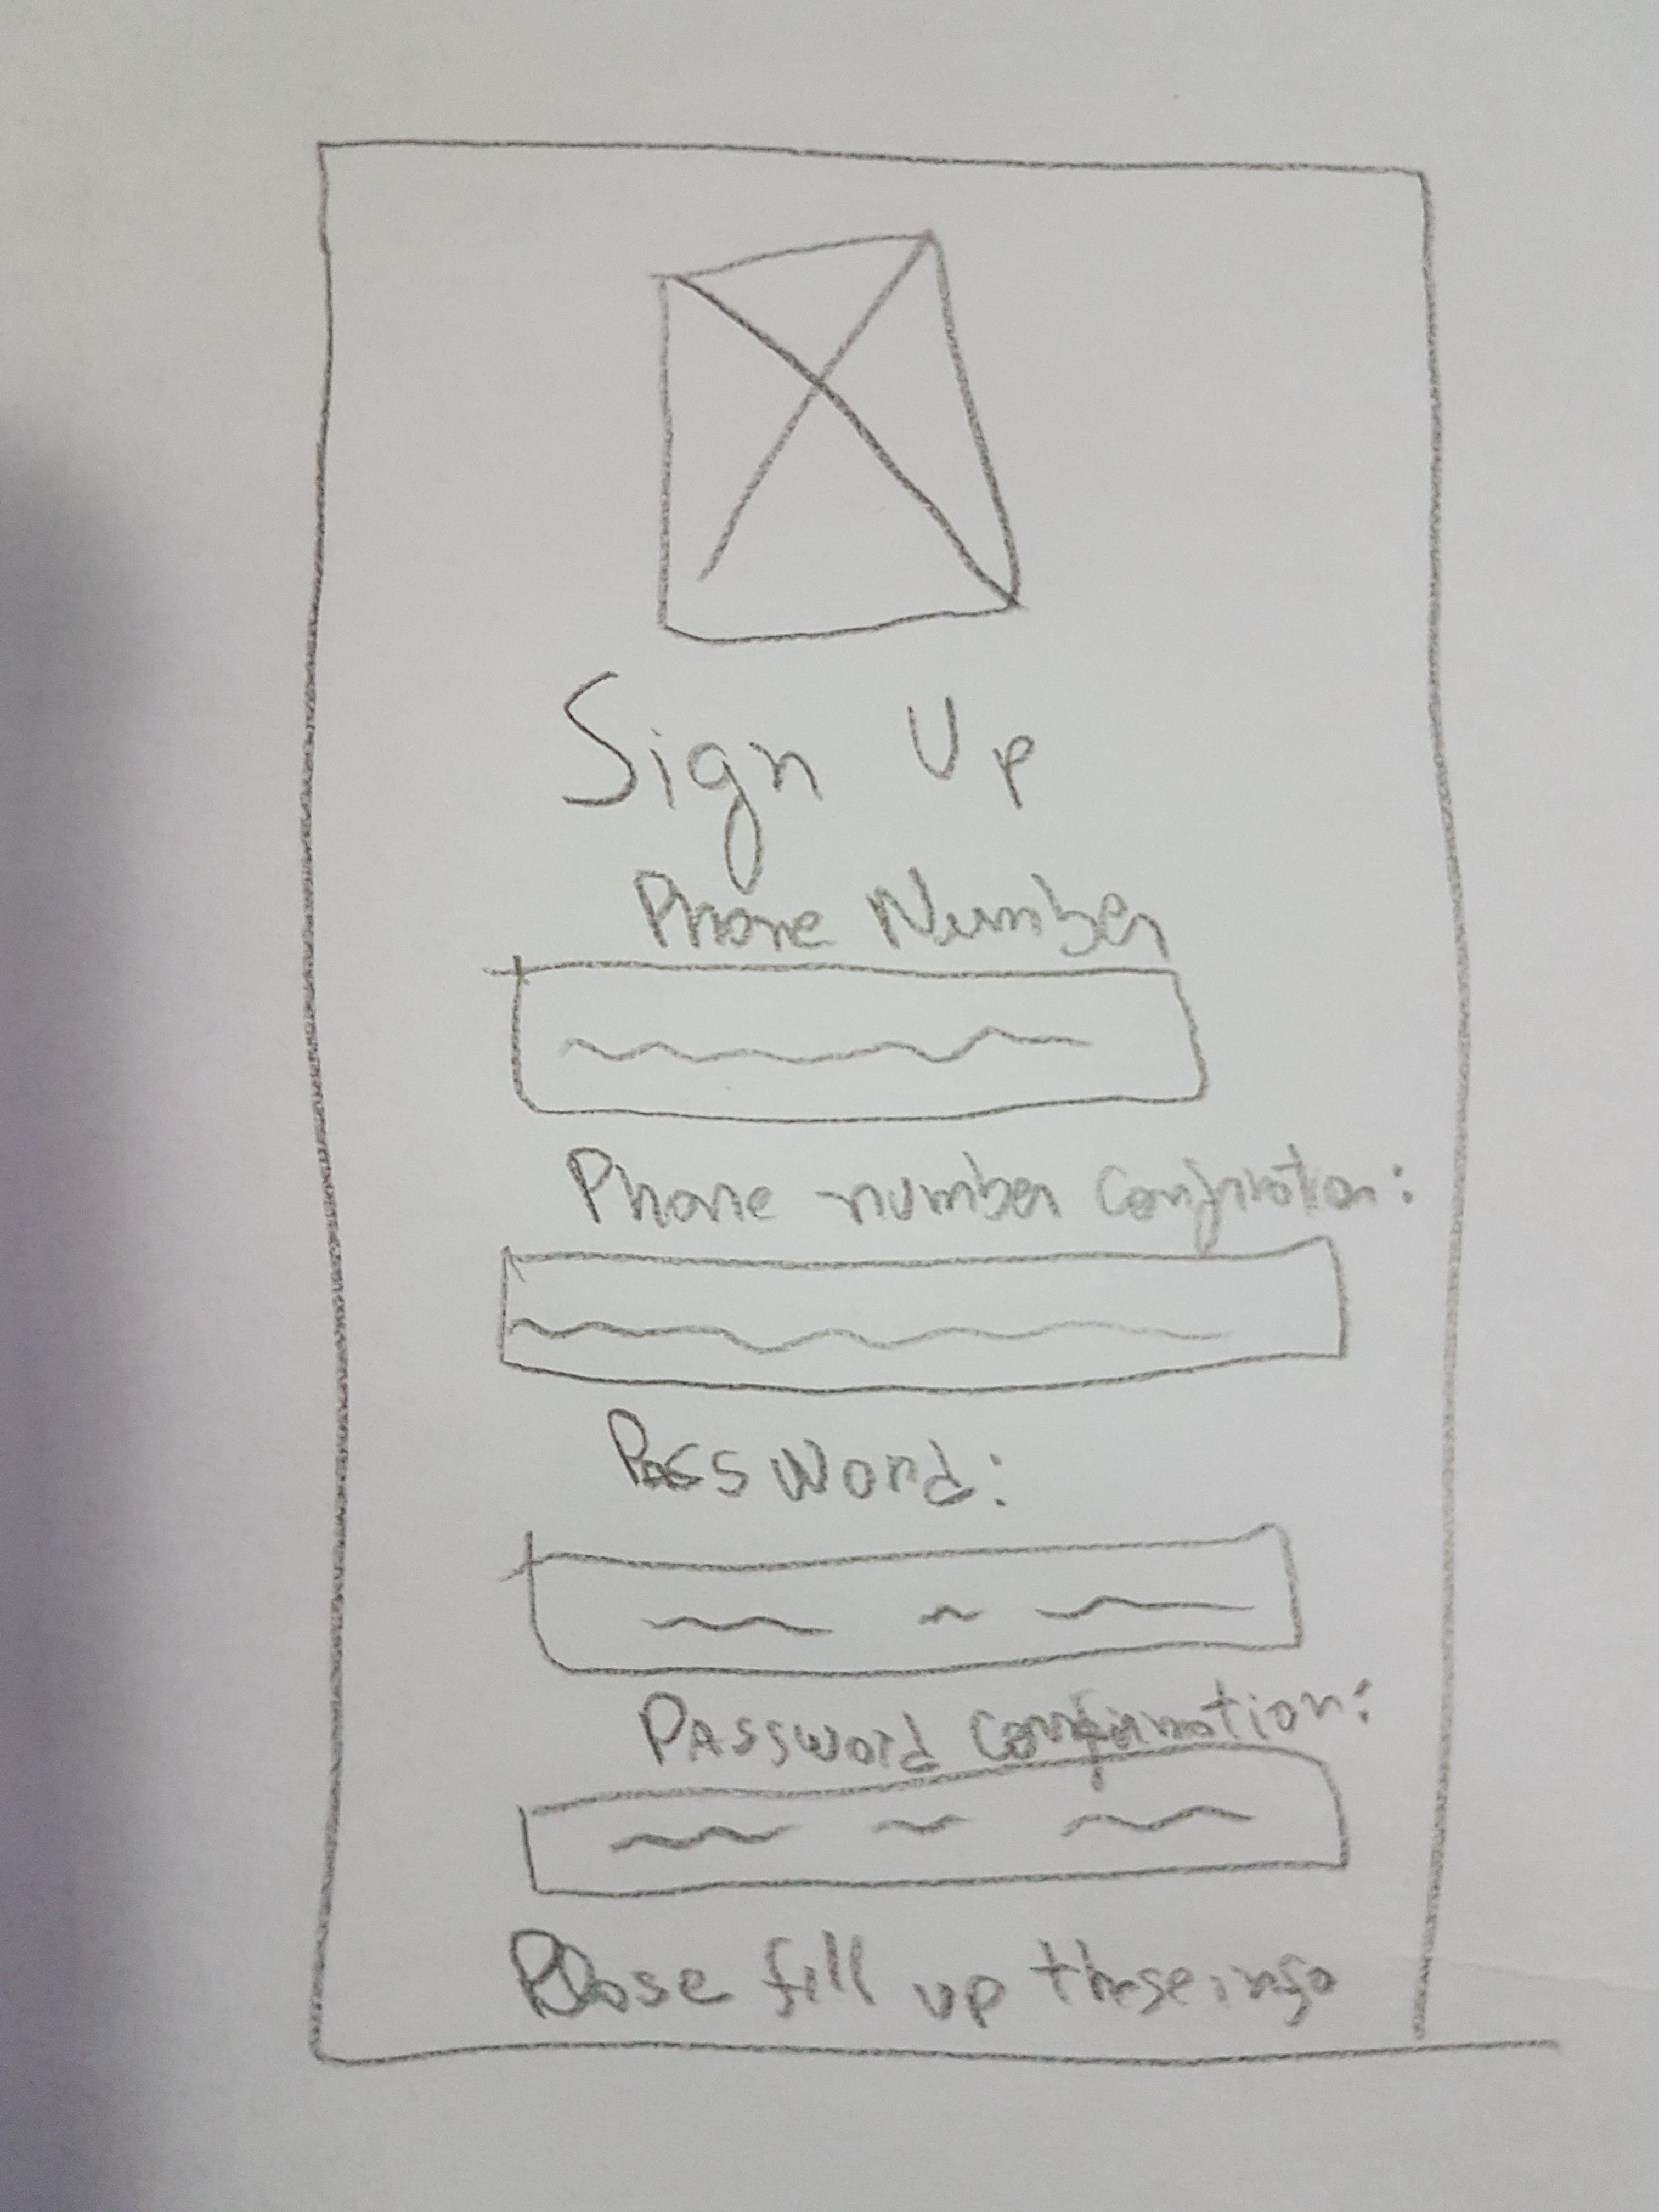 Sign Up
Phone Number
Phone number confirmation:
Password:
Password confirmation:
Please fill up these info